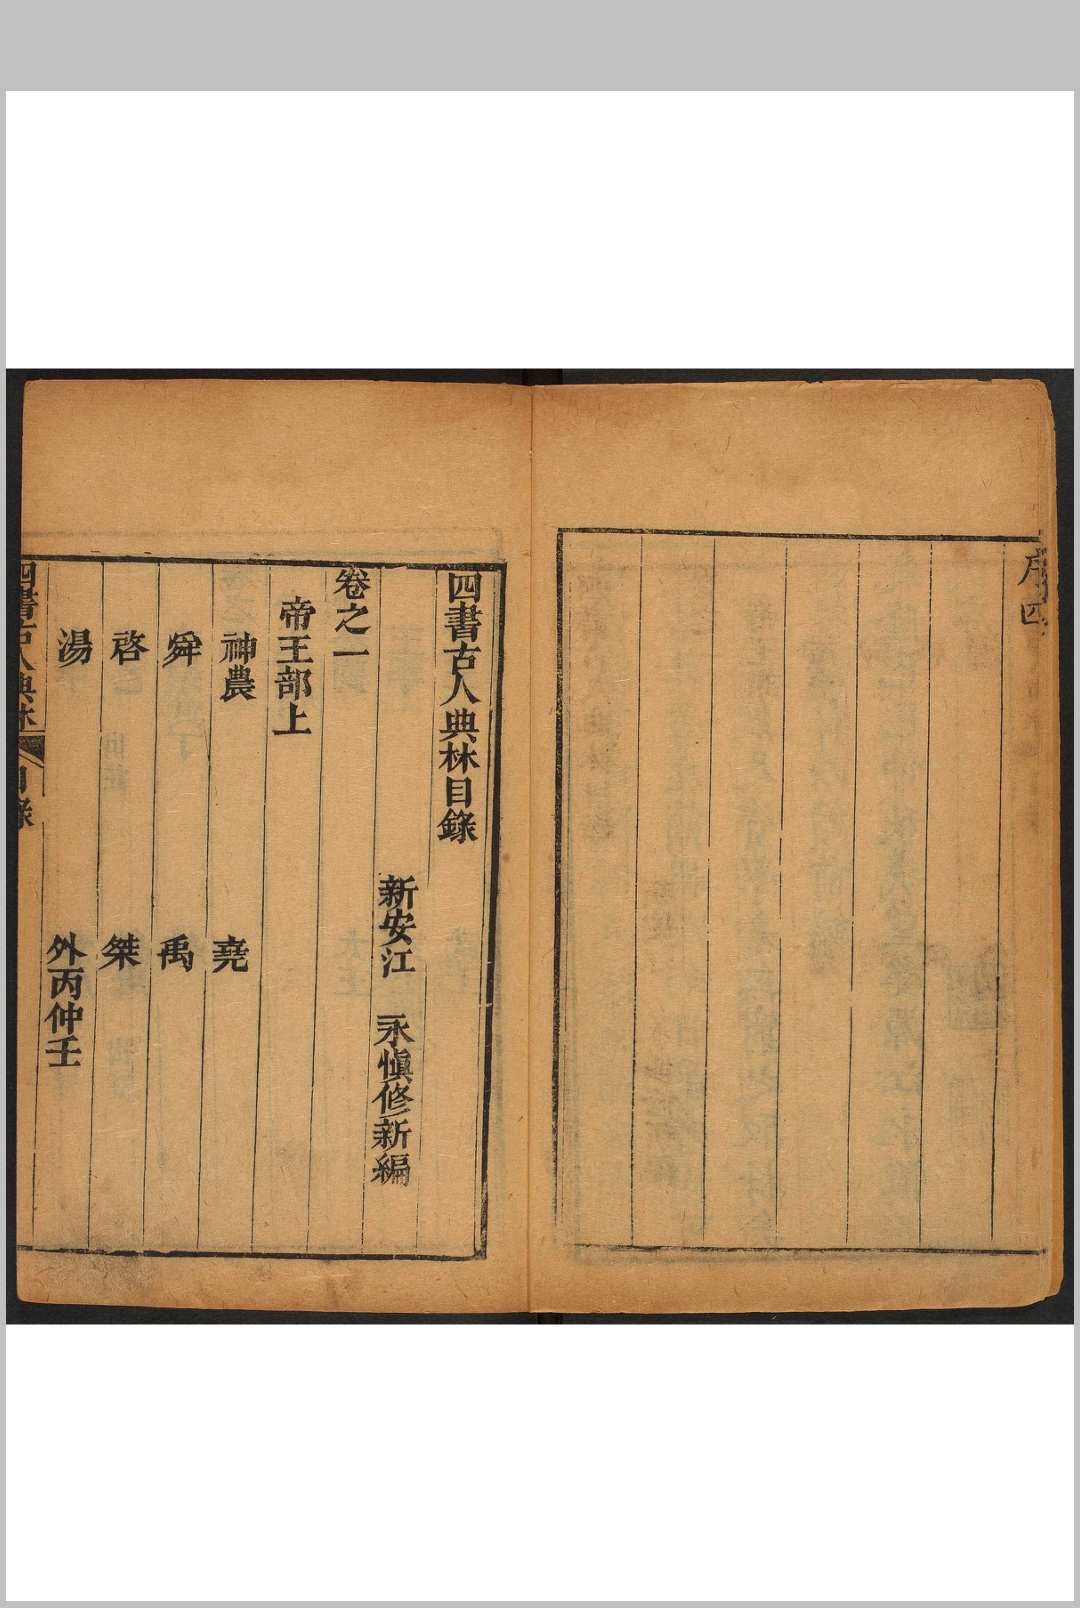 序四
四書古人典林目錄
新安江　永慎修新編
卷之一
帝王部上
神農　堯
舜　禹
啓　桀
湯　外丙仲壬
四書古人典林　目錄